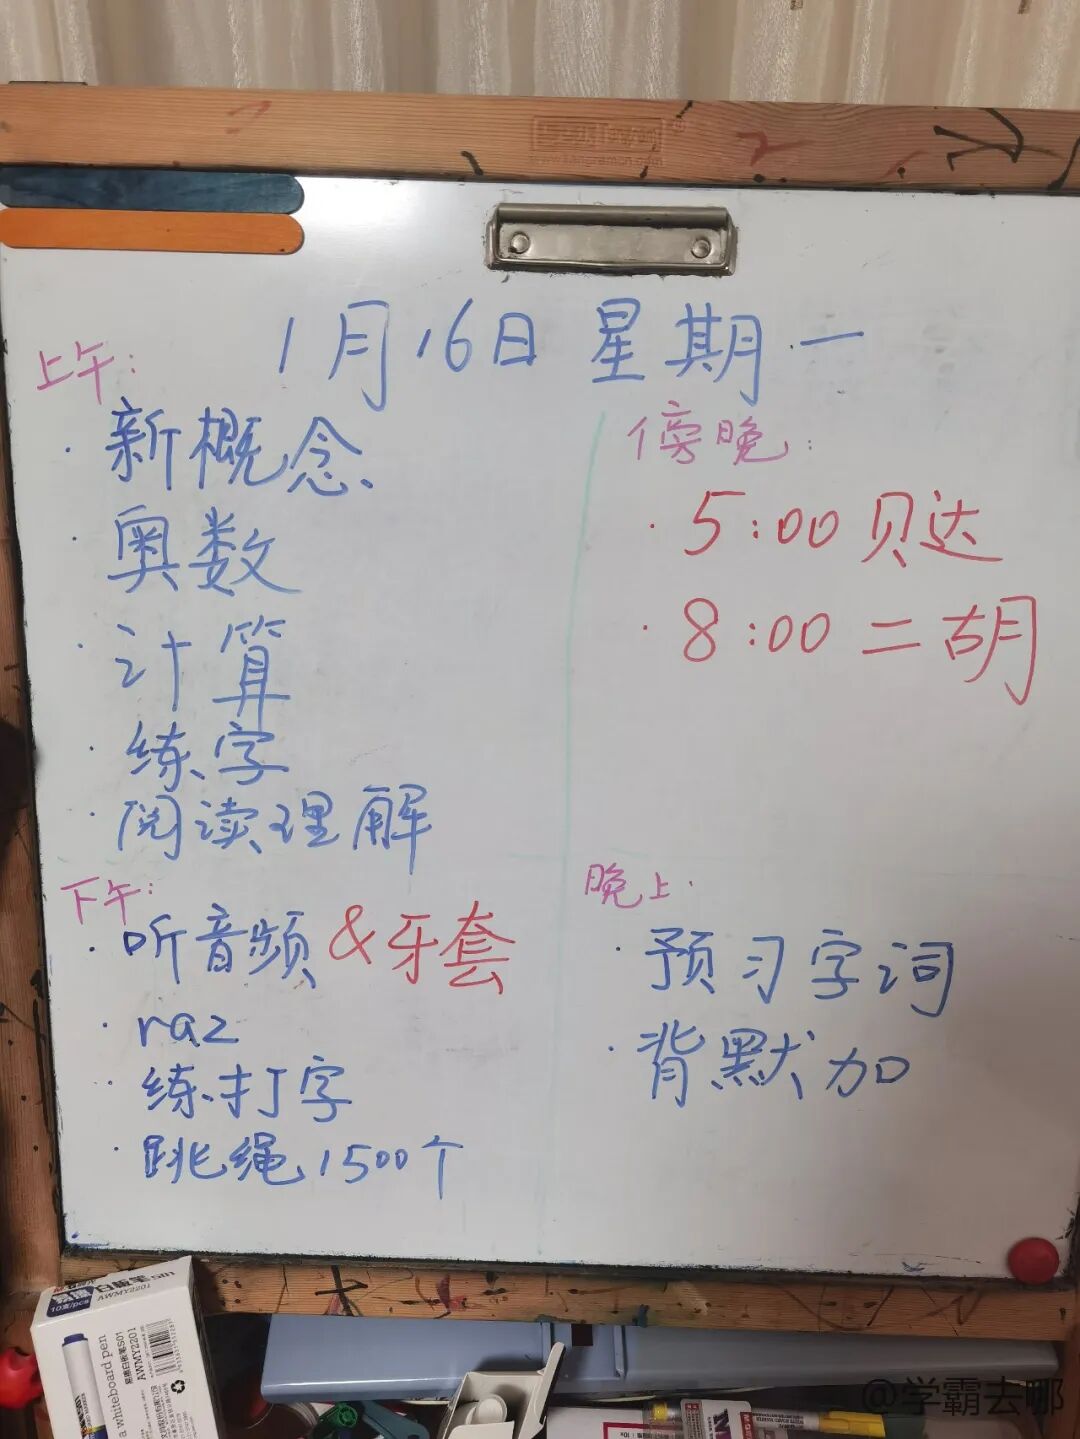 1月16日 星期一
上午:
·新概念、
·奥数
·计算
·练字
·阅读理解
下午:
·听音频&牙套
·raz
·练打字
·跳绳1500个
傍晚:
·5:00贝达
·8:00二胡
晚上·
·预习字词
·背默加
10支/pcs
白板笔
AWMY2201
whiteboard pen
AWMY2201
@学霸去哪